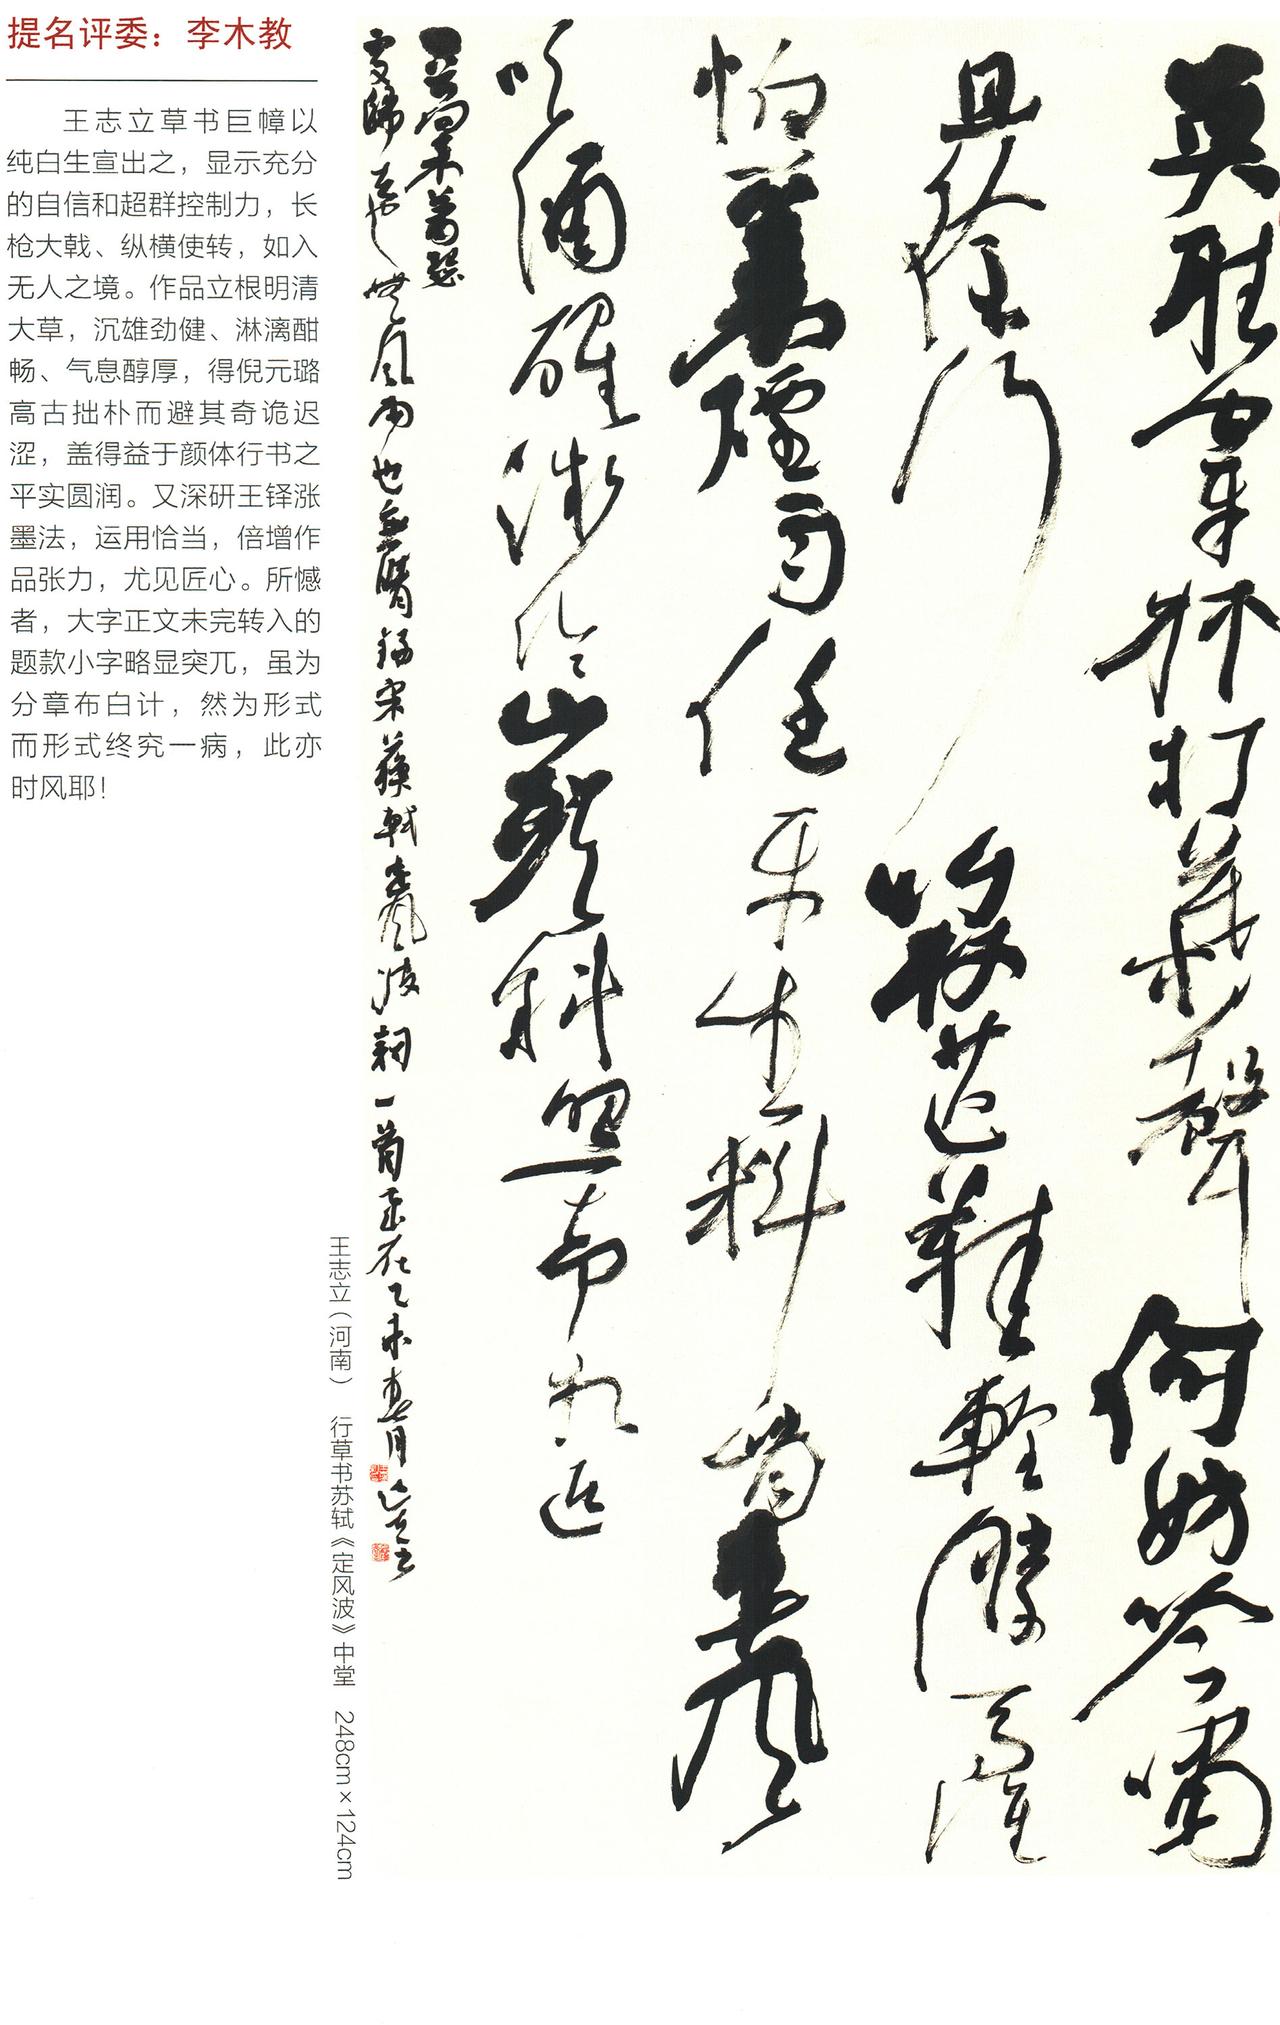 提名评委：李木教
王志立草书巨幛以
纯白生宣出之，显示充分
的自信和超群控制力，长
枪大戟、纵横使转，如入
无人之境。作品立根明清
大草，沉雄劲健、淋漓酣
畅、气息醇厚，得倪元璐
高古拙朴而避其奇诡迟
涩，盖得益于颜体行书之
平实圆润。又深研王铎涨
墨法，运用恰当，倍增作
品张力，尤见匠心。所憾
者，大字正文未完转入的
题款小字略显突兀，虽为
分章布白计，然为形式
而形式终究一病，此亦
时风耶！
莫聽穿林打葉聲何妨吟嘯
且徐行竹杖芒鞋輕勝馬誰
怕一蓑煙雨任平生料峭春風
吹酒醒微冷山頭斜照却相迎
回首向来蕭瑟
處歸去也無風雨也無晴錄宋蘇軾定風波詞一首歲在乙未春月志立书
王志立（河南） 行草书苏轼《定风波》中堂 248cm×124cm